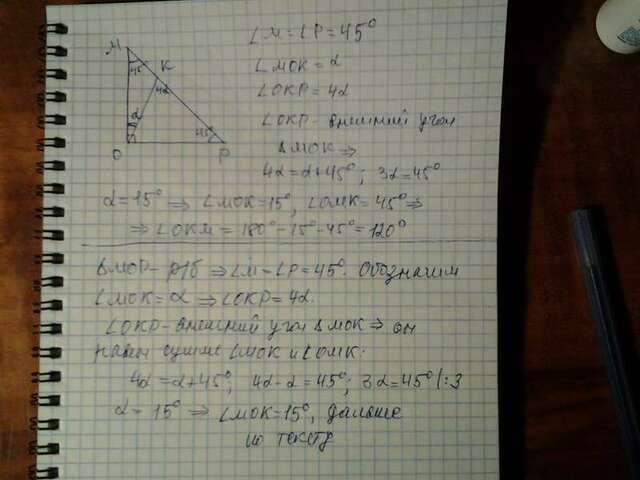 ∠M = ∠P = 45°
∠MOK = α
∠OKP = 4α
∠OKP - внешний угол
ΔMOK ⇒
4α = α + 45°; 3α = 45°
α = 15° ⇒ ∠MOK = 15°, ∠OMK = 45° ⇒
⇒ ∠OKM = 180° - 15° - 45° = 120°
M
45°
K
4α
α
45°
O
P
ΔMOP - р/б ⇒ ∠M = ∠P = 45°. Обозначим
∠MOK = α ⇒ ∠OKP = 4α.
∠OKP - внешний угол ΔMOK ⇒ он
равен сумме ∠MOK и ∠OMK.
4α = α + 45°; 4α - α = 45°; 3α = 45° /:3
α = 15° ⇒ ∠MOK = 15°, дальше
по тексту